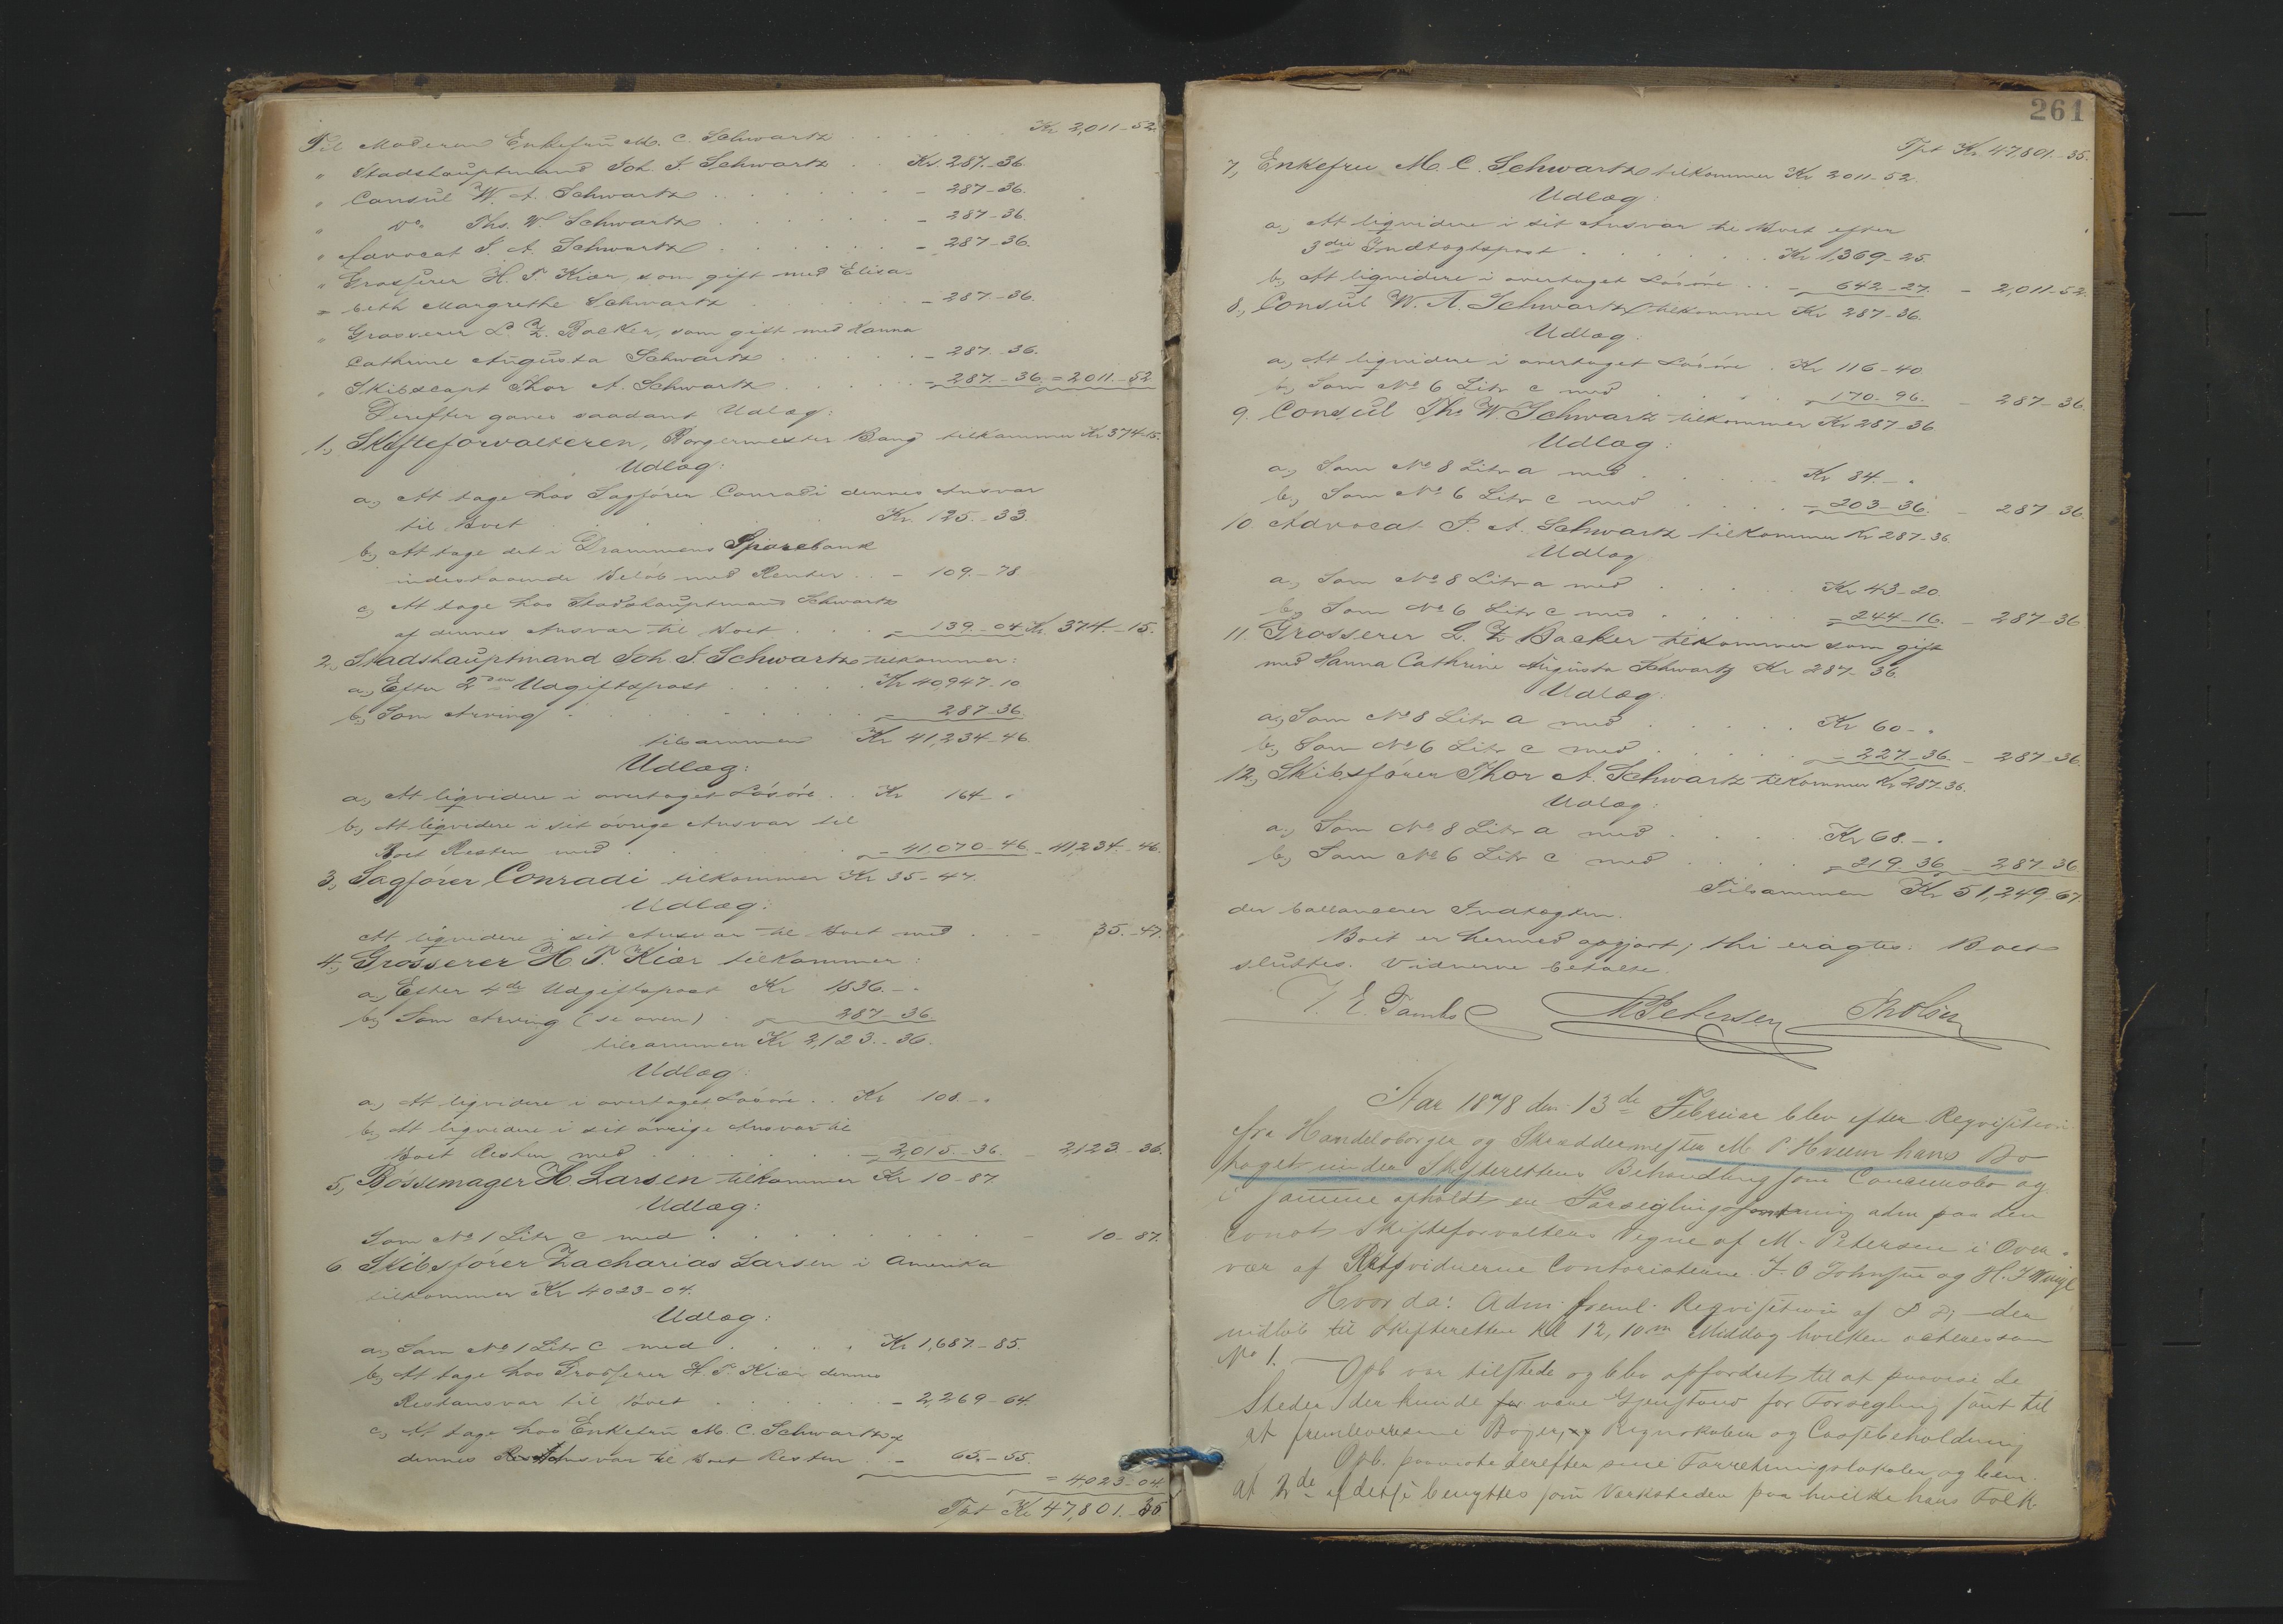 Til Moderen Enkefru M. C. Schwartz . . . . . . . Kr 2,011-52.
" Stadshauptmand Joh. F. Schwartz . . Kr 287-36.
" Consul W. A. Schwartz . . . . . . - 287-36.
" Do. Ths. W. Schwartz . . . . . . - 287-36.
" Advocat P. A. Schwartz . . . . . . - 287-36.
" Grosserer H. P. Kiær, som gift med Elisa-
= beth Margrethe Schwartz . . . . . - 287-36.
" Grosserer L. Z. Backer, som gift med Hanna
Cathrine Augusta Schwartz . . . . . - 287-36.
" Skibscapt Thor A. Schwartz . . . . . - 287-36. = 2011-52
Derefter gaves saadant Udlæg:
1., Skifteforvalteren, Borgermester Bang tilkommer Kr 374-15.
Udlæg:
a., At tage hos Sagfører Conradi dennes Ansvar
til Boet . . . . . . . Kr. 125-33.
b., At tage det i Drammens Sparebank
indestaaende Beløb med Renter . . - 109-78
c., At tage hos Stadshauptmand Schwartz
af dennes Ansvar til Boet . . . . - 139-04 Kr. 374-15.
2., Stadshauptmand Joh. F. Schwartz tilkommer:
a., Efter 2den Udgiftspost . . . . Kr 40,947-10
b., Som Arving . . . . . . . . - 287-36
tilsammen Kr 41,234-46.
Udlæg:
a., At liqvidere i overtaget Løsøre . . Kr 164-"
b., At liqvidere i sit øvrige Ansvar til
Boet Resten med . . . . . . - 41,070-46 - 41,234-46.
3., Sagfører Conradi tilkommer Kr 35-47.
Udlæg:
At liqvidere i sit Ansvar til Boet med . . - 35-47.
4., Grosserer H. P. Kiær tilkommer:
a., Efter 4de Udgiftspost Kr 1836-"
b., Som Arving (se oven) . - 287-36
tilsammen Kr 2,123-36.
Udlæg:
a., At liqvidere i overtaget Løsøre . . Kr 108-"
b., At liqvidere i sit øvrige Ansvar til
Boet Resten med . . . . . . - 2,015-36. - 2,123-36.
5., Bøssemager H. Larsen tilkommer Kr 10-87.
Udlæg:
Som No 1 Litr c med . . . . . . . - 10-87.
6. Skibsfører Zacharias Larsen i Amerika
tilkommer Kr 4023-04.
Udlæg:
a., Som No 1 Litr C med . . . . Kr 1,687-85.
b., At tage hos Grosserer H. P. Kiær dennes
Restansvar til Boet . . . . . . - 2,269-64.
c., At tage hos Enkefru M. C. Schwartz
dennes Ansvar til Boet Resten . . - 65-55.
= 4023-04
Tpt Kr 47,801-35
261
Tpt Kr. 47,801-35.
7., Enkefru M. C. Schwartz tilkommer Kr 2011-52.
Udlæg:
a., At liqvidere i sit Ansvar til Boet efter
3die Indtægtspost . . . . . . Kr 1,369-25.
b., At liqvidere i overtaget Løsøre . . - 642-27. - 2,011-52
8., Consul W. A. Schwartz tilkommer Kr 287-36.
Udlæg:
a., At liqvidere i overtaget Løsøre . Kr 116-40.
b., Som No 6 Litr c med . . . . - 170-96. - 287-36
9. Consul Ths W Schwartz tilkommer Kr 287-36
Udlæg:
a., Som No 8 Litr a med . . . . . Kr 84-"
b., Som No 6 Litr c med . . . . . - 203-36. - 287-36.
10. Advocat P. A. Schwartz tilkommer Kr 287-36.
Udlæg
a., Som No 8 Litr a med . . . . . Kr 43-20.
b., Som No 6 Litr c med . . . . . = 244-16. - 287-36
11. Grosserer L. Z. Backer tilkommer som gift
med Hanna Cathrine Augusta Schwartz Kr 287-36.
Udlæg:
a., Som No 8 Litr a med . . . . . Kr 60-"
b., Som No 6 Litr c med . . . . . - 227-36. - 287-36.
12., Skibsfører Thor A. Schwartz tilkommer Kr 287-36.
Udlæg:
a., Som No 8 Litr a med . . . . . Kr 68-"
b., Som No 6 Litr c med . . . . . = 219-36 - 287-36
Tilsammen Kr 51,249-67
der ballancerer Indtægten.
Boet er hermed opgjort; thi eragtes: Boet
sluttes. Vidnerne betalte.
T. E. Tambs M Petersen
Aar 1878 den 13de Februar blev efter Reqvisition
fra Handelsborger og Skræddermester M P Hveem hans Bo
taget under Skifterettens Behandling som Concursbo og
i samme afholdt en Forseglingsforretning adm paa den
const. Skifteforvalters Vegne af M. Petersen i Over-
vær af Retsvidnerne Contoristerne F. O Johnsen og H. J
Hvorda: Adm. freml. Reqvisition af D. D., der
indløb til Skifteretten Kl 12,10m Middag hvilken acteres som
No 1. — Opb var tilstede og blev opfordret til at paavise de
Steder der kunde være Gjenstand for Forsegling samt til
at fremlevere sine Bøger, Regnskaber og Cassebeholdning
Opb. paaviste derefter sine Forretningslokaler og bem.
at 2de af disse benyttes som Værksteder paa hvilke hans Folk